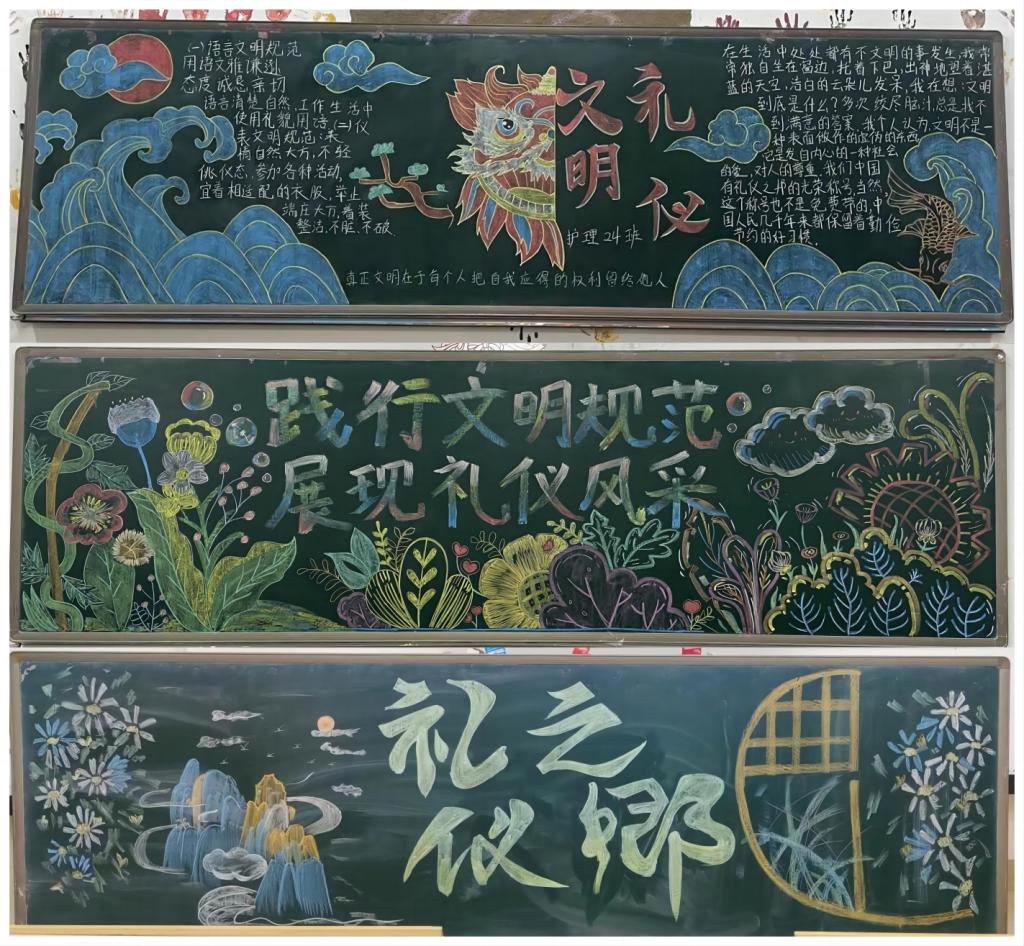 (一)语言文明规范
用语文雅谦逊
态度诚恳亲切
语言清楚自然,工作生活中
使用礼貌用语(二)仪
表文明规范:来
情自然大方,不轻
佻,仪态,参加各种活动,
宜着相适配的衣服,举止
端庄大方,着装
整洁,不脏、不破.
文明
礼仪
护理24班
真正文明在于每个人把自我应得的权利留给他人
在生活中处处都有不文明的事发生,我常
常独自坐在窗边,托着下巴,出神地望着湛
蓝的天空,洁白的云朵儿发呆,我在想:文明
到底是什么?多次绞尽脑汁,总是找不
到满意的答案,我个人认为,文明不是一
种表面做作的虚伪的东西
它是发自内心的一种社会
的爱,对人的尊重,我们中国
有礼仪之邦的光荣称号,当然,
这个称号也不是免费带的,中
国人民几千年来都保留着勤俭
节约的好习惯.
践行文明规范
展现礼仪风采
礼之
仪乡